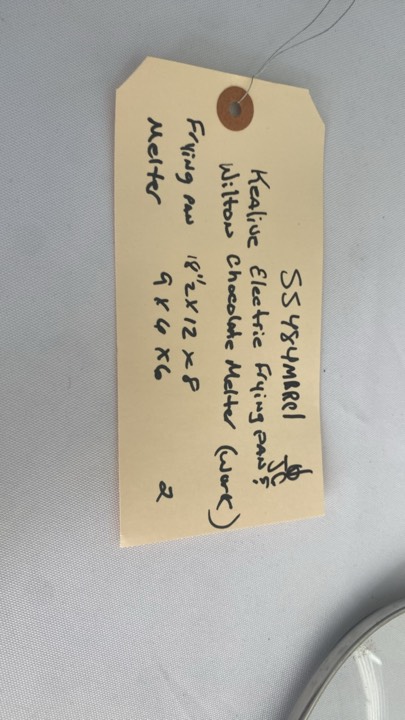 SS484MBR01
JC
Kealive Electric Frying PAN &
Wilton Chocolate Melter (Work)
Frying PAN 18 1/2 x 12 x 8
Melter 9 x 6 x 6
2